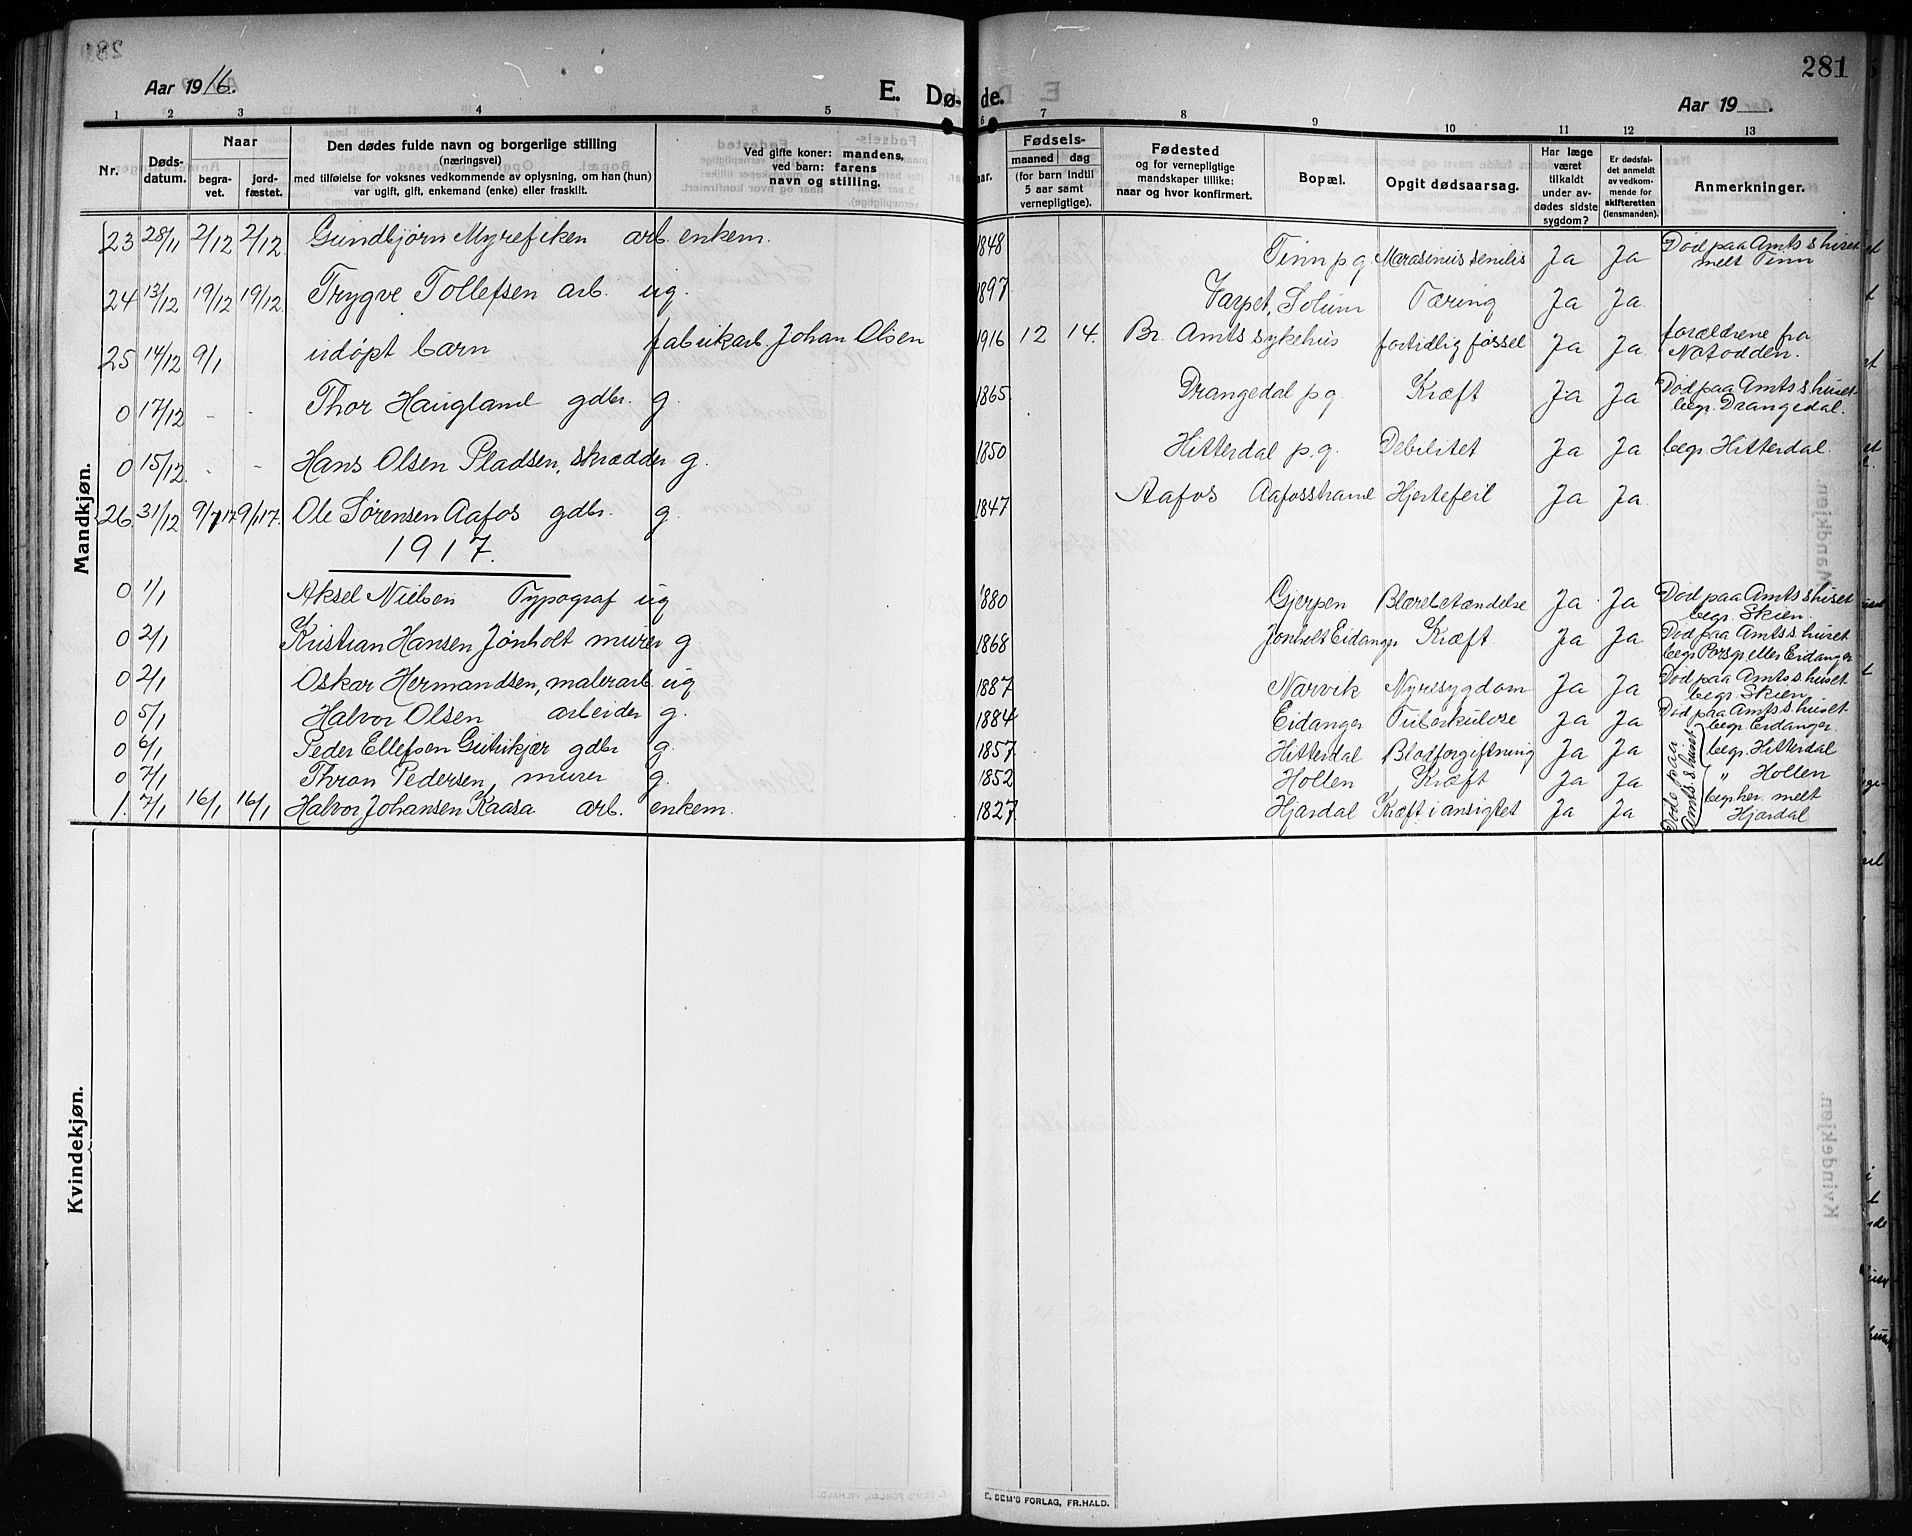 281
Aar 1916.
E. Dø- de.
Aar 19 .
1 2 3 4 5 6 7 8 9 10 11 12 13
Nr.
Døds-datum.
Naar
begra-vet.
jord-fæstet.
Den dødes fulde navn og borgerlige stilling
(næringsvei)
med tilføielse for voksnes vedkommende av oplysning, om han (hun)
var ugift, gift, enkemand (enke) eller fraskilt.
Ved gifte koner: mandens,
ved barn: farens
navn og stilling.
aar.
Fødsels-
maaned dag
(for barn indtil
5 aar samt
vernepligtige).
Fødested
og for vernepligtige
mandskaper tillike:
naar og hvor konfirmert.
Bopæl.
Opgit dødsaarsag.
Har læge
været
tilkaldt
under av-
dødes sidste
sygdom?
Er dødsfal-
det anmeldt
av vedkom-
mende for
skifteretten
(lensmanden).
Anmerkninger.
Mandkjøn.
23 28/11 2/12 2/12 Gundbjørn Myrefiken arb. enkem. 1848 Tinn p.g. Marasmus senilis Ja Ja Død paa Amtsshuset melt Tinn
24 13/12 19/12 19/12 Trygve Tollefsen arb. ug. 1897 Varpet, Solum Tæring Ja Ja.
25 14/12 9/1 udøpt barn fabrikarb. Johan Olsen 1916 12 14. Br. Amtssykehus fortidlig føssel Ja Ja. forældrene fra Notodden.
0 17/12 - - Thor Haugland gdbr. g. 1865 Drangedal p g. Kræft Ja Ja Død paa Amtsshuset begr. Drangedal.
0 15/12 - - Hans Olsen Pladsen, skrædder g. 1850 Hitterdal p.g. Debilitet Ja Ja begr. Hitterdal.
26 31/12 9/1 17 9/1 17. Ole Sørensen Aafos gdbr. g. 1847 Aafos Aafosstrand Hjertefeil Ja Ja
1917.
0 1/1 Aksel Nielsen Typograf ug 1880 Gjerpen Blærebetændelse Ja Ja Død paa Amtsshuset begr. Skien.
0 2/1 Kristian Hansen Jønholt murer g 1868 Jønholt Eidanger Kræft. Ja Ja Død paa Amtss.huset begr. Porsgr. eller Eidanger
0 2/1 Oskar Hermandsen, malerarb. ug 1887 Narvik Nyresygdom Ja Ja Død paa Amtsshuset begr. Skien
0 5/1 Halvor Olsen arbeider g. 1884 Eidanger Tuberkulose Ja Ja Død paa Amtsshuset begr. Eidanger.
0 6/1 Peder Ellefsen gdbr g. 1857 Hitterdal Blodforgiftning Ja Ja begr. Hitterdal
0 7/1 Thron Pedersen, murer g. 1852 Hollen Kræft Ja Ja " Hollen
1. 7/1 16/1 16/1 Halvor Johansen Kaasa arb. enkem. 1827 Hjardal Kræft i ansigtet Ja Ja begr her. melt Hjardal
Døde paa Amtss.huset
Kvindekjøn.
E. SEM'S FORLAG, FR.HALD.